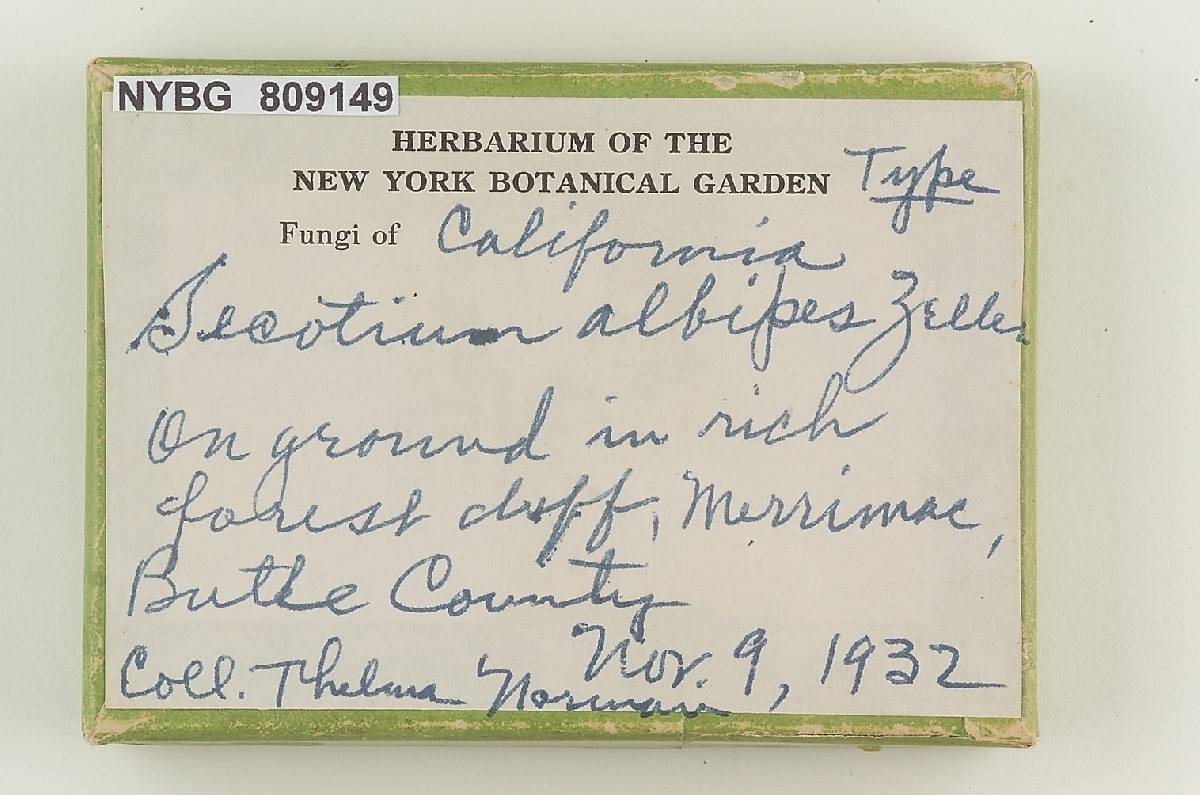 NYBG 809149
HERBARIUM OF THE
NEW YORK BOTANICAL GARDEN Type
Fungi of California
Secotium albipes Zeller
On ground in rich
forest duff, Merrimac,
Butte County
Nov. 9, 1932
Coll. Thelma Norman